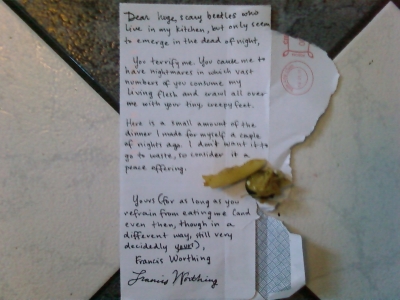 Dear huge, scary beetles who
live in my kitchen, but only seem
to emerge in the dead of night,
You terrify me. You cause me to
have nightmares in which vast
numbers of you consume my
living flesh and crawl all over
me with your tiny, creepy feet.
Here is a small amount of the
dinner I made for myself a couple
of nights ago. I don't want it to
go to waste, so consider it a
peace offering.
Yours (for as long as you
refrain from eating me (and
even then, though in a
different way, still very
decidedly yours)),
Francis Worthing
Francis Worthing